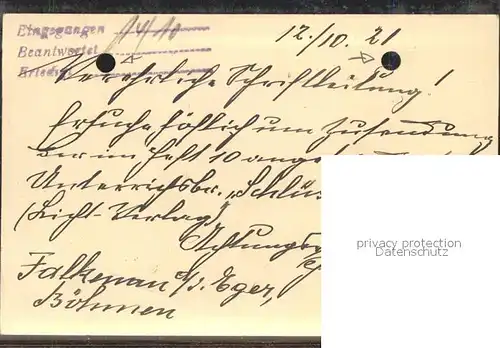 Eingegangen 14/10
Beantwortet
Erledigt
12./10. 21
Verehrliche Schriftleitung!
Ersuche höflich um Zusendung
der im Heft 10
Unterrichtsbr. „Schlüs
(Licht-Verlag)
Achtungs
Falkenau a/d. Eger,
Böhmen
privacy protection
Datenschutz